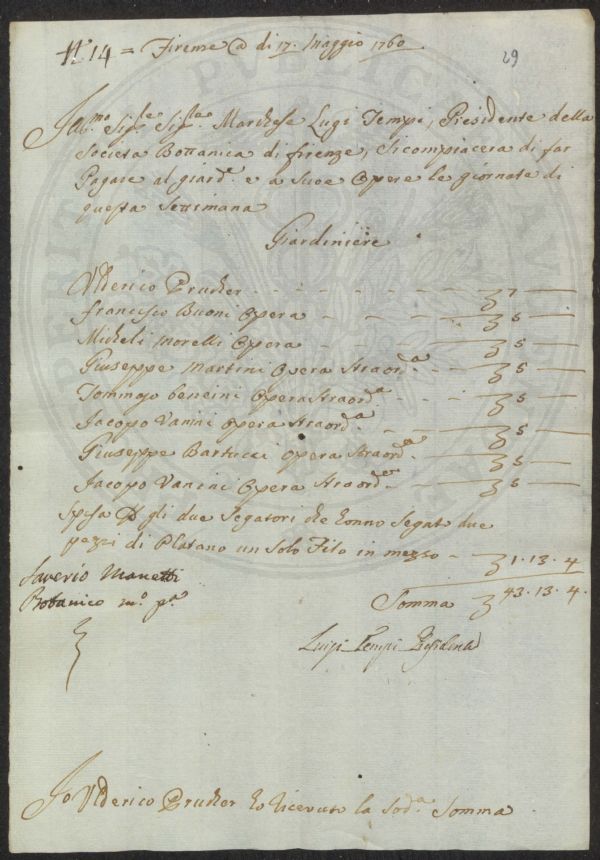 N° 14 = Firenze @ di 17. Maggio 1760
29
Ill.mo Sig.re Sig.re Marchese Luigi Tempi, Presidente della
Società Bottanica di firenze, Si compiacera di far
Pagare al giard.e e a Suoe Opere le giornate di
questa Settimana
Giardiniere
Ulderico Prucker - - - - - 7 —
Francesco Buoni Opera - - - 5 —
Micheli Morelli Opera - - - 5 —
Giuseppe Martini Opera Straord.a - - 5 —
Tommaso Bencini Opera Straord.a - - 5 —
Jacopo Vanini Opera Straord.a - - 5 —
Giuseppe Bartucci Opera Straord.a - 5 —
Jacopo Vanini Opera Straord. - 5 —
Spesa P gli due Segatori che hanno Segato due
pezzi di Platano un Solo Filo in mezzo - 1. 13. 4
Saverio Manetti
Botanico m.o p.a
Somma 43. 13. 4.
Luigi Tempi Presidente
Jo Ulderico Prucker ho riceuto la Sod.a Somma